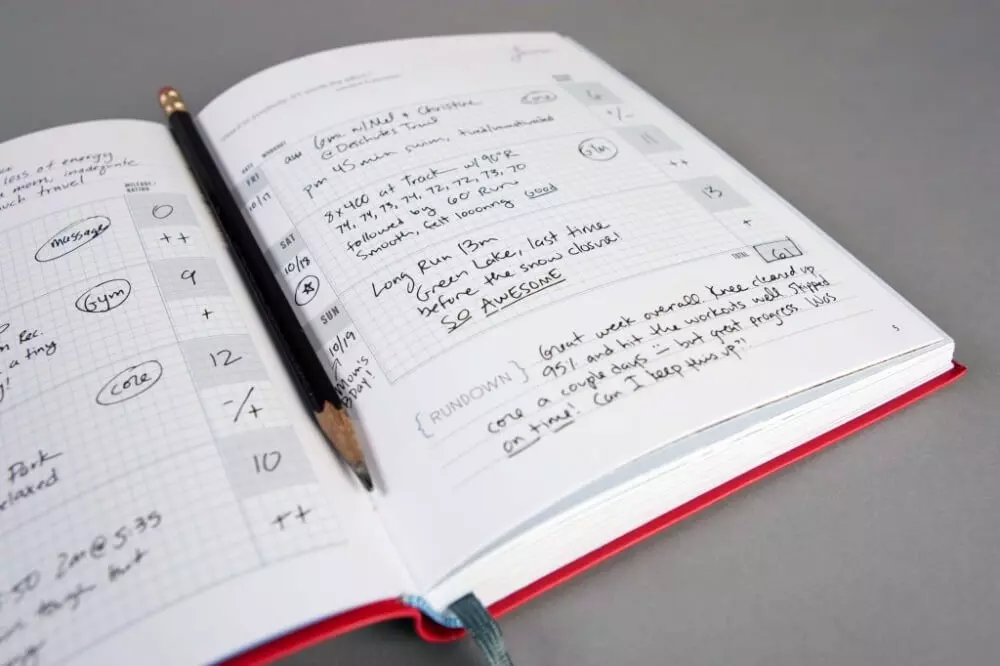 loss of energy
mom, inadequate
much travel
MILEAGE/
RATING
massage
0
++
Gym
9
+
Rec.
a tiny
core
12
-/+
Park
relaxed
10
++
:50 2m @ 5:35
tough but
DATE WORKOUT
FRI
10/17
am 6m w/Mel + Christine
@ Deschutes Trail
pm 45 min swim, tired/unmotivated
core
6
+/-
SAT
10/18
8x400 at Track w/ 90"R
74, 74, 73, 74, 72, 72, 73, 70
followed by 60' Run
Smooth, felt looong Good
Gym
11
++
SUN
10/19
Mom's
Bday!
Long Run 13m
Green Lake, last time
before the snow closure!
SO AWESOME
13
+
TOTAL
61
{RUNDOWN}
Great week overall. Knee cleared up
95% and hit the workouts well. Skipped
core a couple days — but great progress. Was
on time! Can I keep this up?!
5